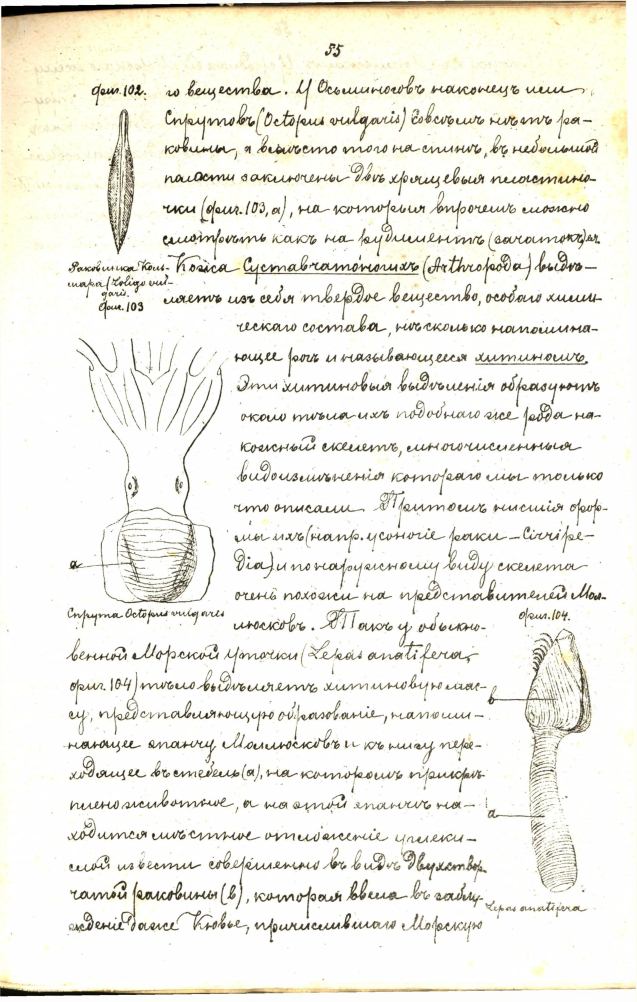 55
фиг. 102.
го вещества. У Осьминоговъ наконецъ или
Спрутовъ (Octopus vulgaris) совсѣмъ нѣтъ ра-
ковины, а вмѣсто того на спинѣ, въ небольшой
полости заключены двѣ хрящевыя пластино-
чки (фиг. 103, а), на которыя впрочемъ можно
смотрѣть какъ на рудиментъ (зачатокъ) ея.
Раковинка Каль-
мара (Loligo vul-
garis.
фиг. 103
Кожа Суставчатоногихъ (Arthropoda) выдѣ-
ляетъ изъ себя твердое вещество, особаго хими-
ческаго состава, нѣсколько напомина-
ющее рогъ и называющееся хитиномъ.
Эти хитиновыя выдѣленія образуютъ
около тѣла ихъ подобнаго же рода на-
кожный скелетъ, многочисленныя
видоизмѣненія котораго мы только
что описали. Притомъ низшія фор-
мы ихъ (напр. усоногіе раки – Cirripe-
dia) и по наружному виду скелета
очень похожи на представителей Мол-
люсковъ. Такъ у обыкно-
а
Спрута Octopus vulgaris
фиг. 104.
венной Морской Уточки (Lepas anatifera,
фиг. 104) тѣло выдѣляетъ хитиновую мас-
су, представляющую образованіе, напоми-
нающее эпанчу Моллюсковъ и къ низу пере-
ходящее въ стебель (а), на которомъ прикрѣ-
плено животное, а на этой эпанчѣ на-
ходится мѣстное отложеніе углеки-
слой извести совершенно въ видѣ двухствор-
чатой раковины (в), которая ввела въ заблу-
жденіе даже Кювье, причислившаго Морскую
в
а
Lepas anatifera